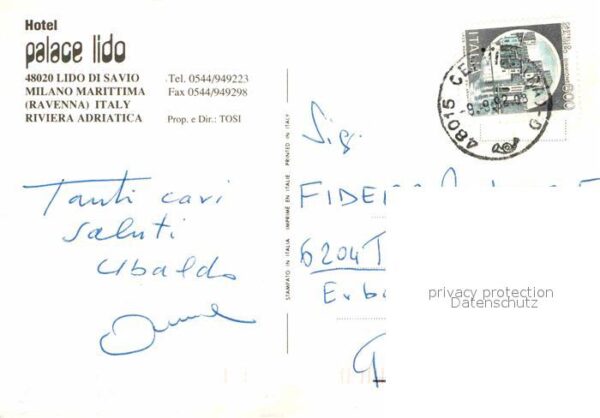 Hotel
palace lido
48020 LIDO DI SAVIO
MILANO MARITTIMA
(RAVENNA) ITALY
RIVIERA ADRIATICA
Tel. 0544/949223
Fax 0544/949298
Prop. e Dir.: TOSI
Tanti cari
saluti
Ubaldo
STAMPATO IN ITALIA IMPRIMÉ EN ITALIE PRINTED IN ITALY
ITALIA
600
48015
Sig.
FIDE
6204
privacy protection
Datenschutz